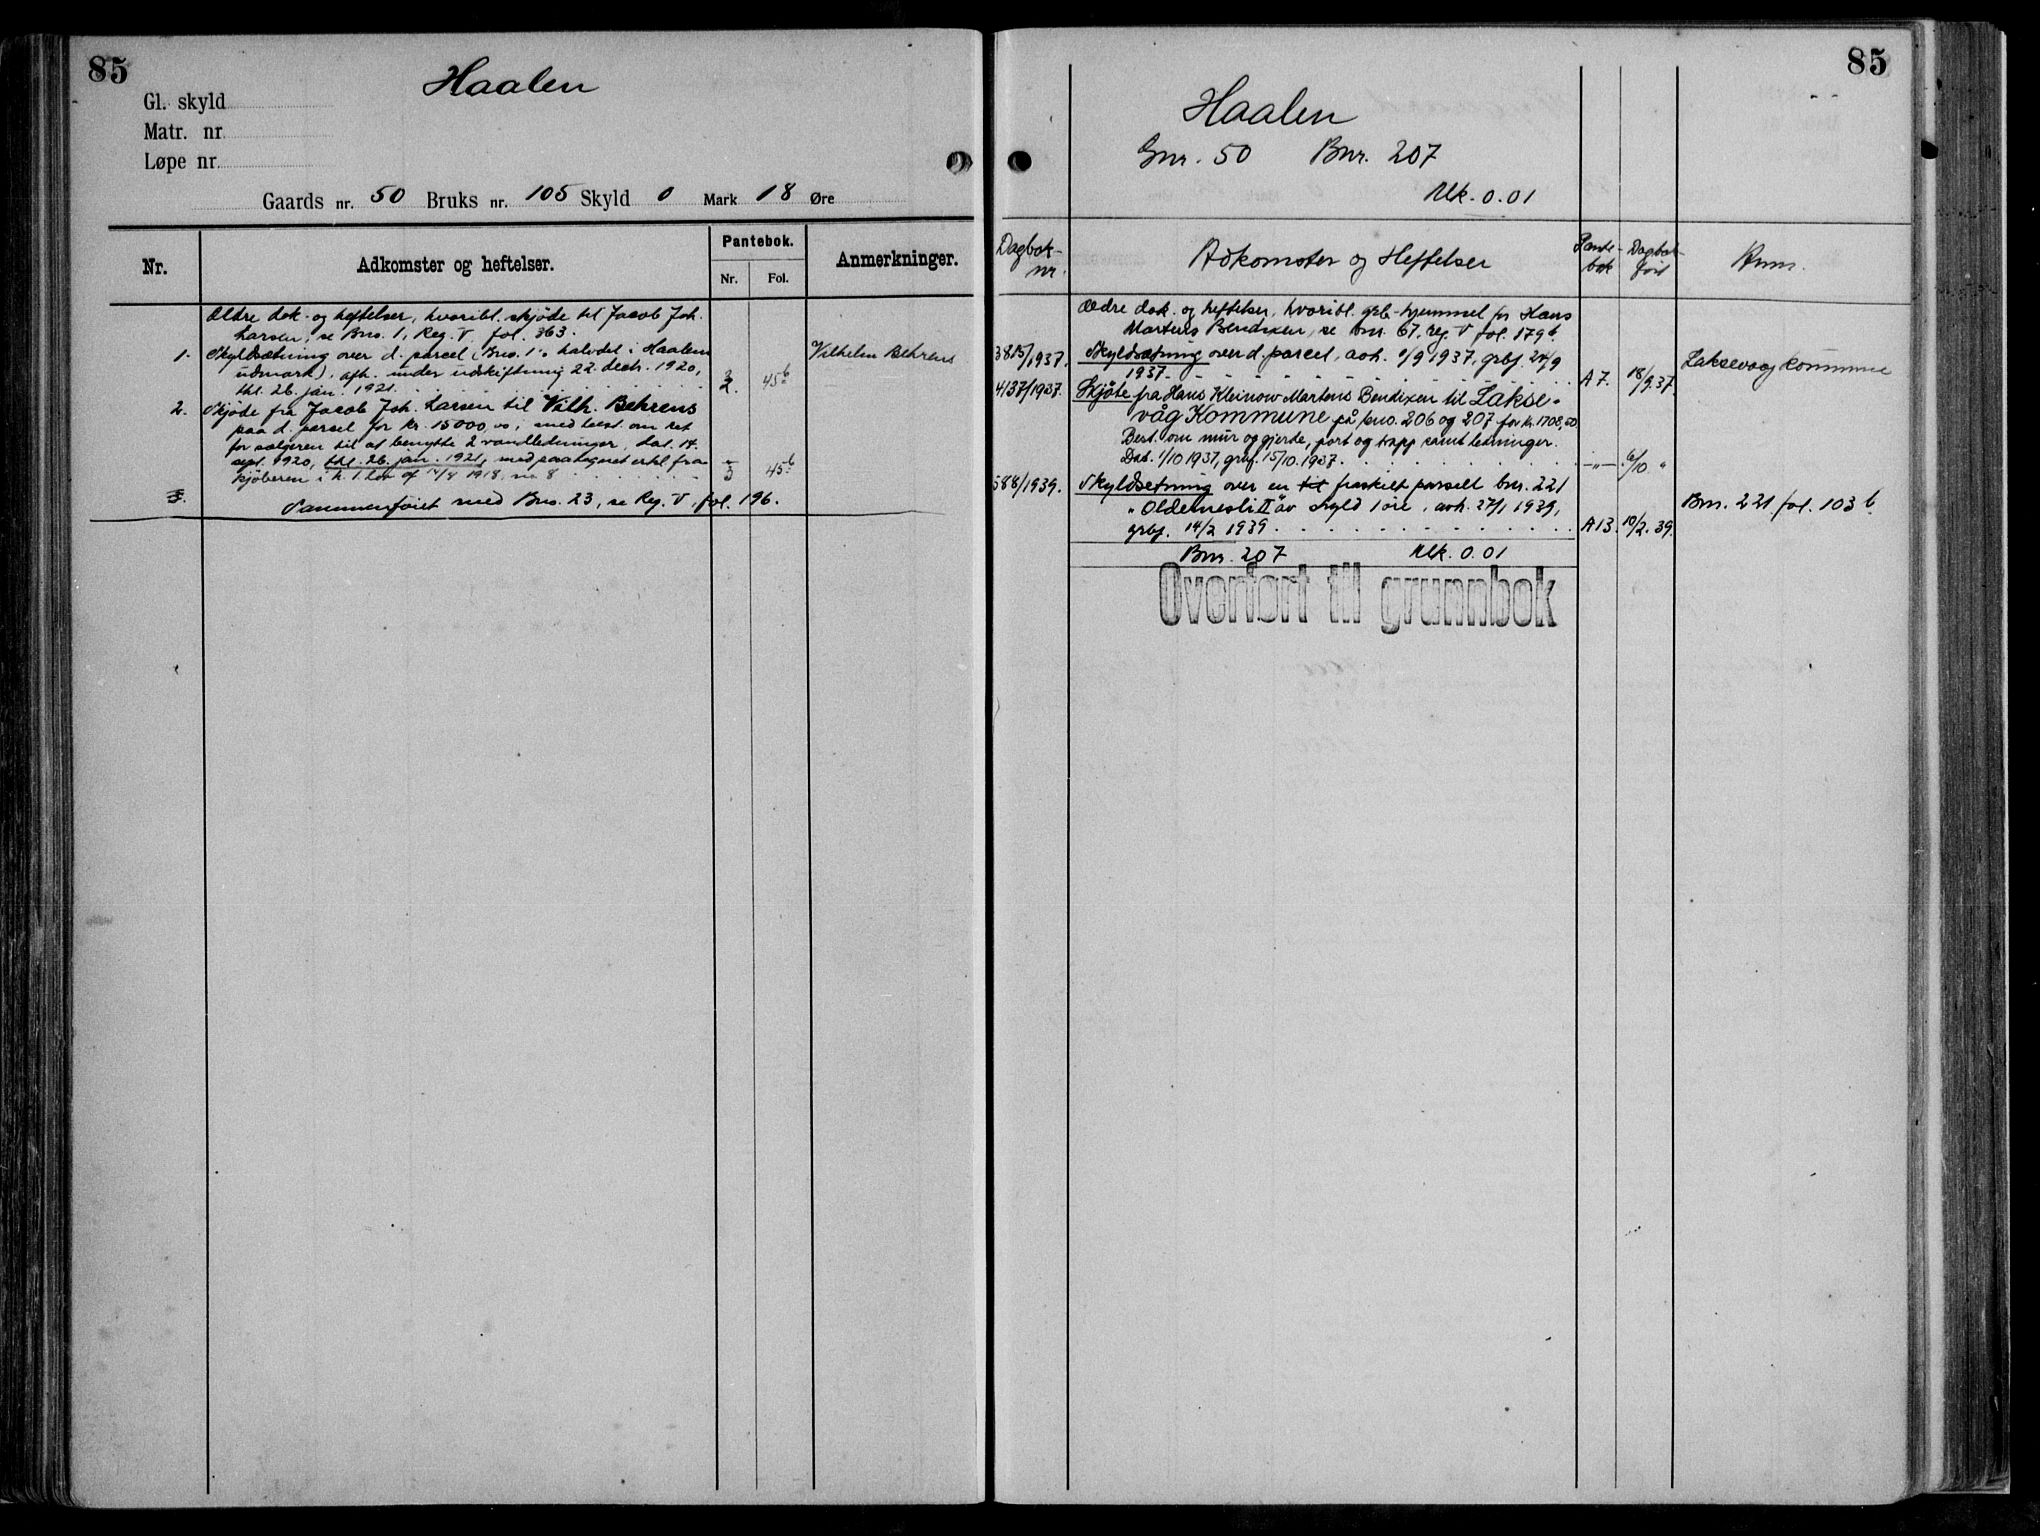 85
Haalen
Gl. skyld
Matr. nr
Løpe nr.
Gaards nr. 50 Bruks nr. 105 Skyld 0 Mark 18 Øre
Nr.
Adkomster og heftelser.
Pantebok.
Nr.
Fol.
Anmerkninger.
Ældre dok. og heftelser, hvoribl. skjøde til Jacob Joh.
Larsen, se Bno. 1, Reg. V. fol. 363.
1. Skyldsætning over d. parcel (Bno. 1's halvdel i Haalen
udmark), afh. under udskiftning 22. decbr. 1920,
thl. 26. jan. 1921. 45b
Vilhelm Behrens
2. Skjøde fra Jacob Joh. Larsen til Vilh. Behrens
paa d. parsel for kr. 15000,00, med best. om ret
for sælgeren til at benytte 2 vandledninger, dat. 14.
sept. 1920, thl. 26. jan. 1921, med paategnet erkl. fra
kjøberen i h. t. lov af 14/8 1918, no 8 45b
3. Sammenføiet med Bno. 23, se Reg. V, fol. 196.
85
Haalen
Gnr. 50 Bnr. 207
Mk. 0.01
Dagbok-
nr.
Adkomster og Heftelser
Pante-
bok
Dagbok-
ført
Anm.
Ældre dok. og heftelser, hvoribl. grb-hjemmel for Hans
Martens Bendixen, se bnr. 67, reg. V fol. 179b.
3815/1937. Skyldsætning over d. parcel, avh. 1/9 1937, grbf. 24/9
1937. A 7. 18/9.37.
Laksevaag kommune
4137/1937. Skjøte fra Hans Kleinow Martens Bendixen til Lakse-
våg Kommune på bno. 206 og 207 for kr. 1708,50
Best. om mur og gjerde, port og trapp samt ledninger.
Dat. 1/10 1937, grbf. 15/10. 1937. —"— 6/10. "
588/1939. Skyldsetning over en til fraskilt parsell bnr. 221
"Oldernesli II" av skyld 1 øre, avh. 27/1 1939,
grbf. 14/2 1939 A 13. 10/2. 39.
Bnr. 221 fol. 103b.
Bnr. 207 Mk. 0.01
Overført til grunnbok